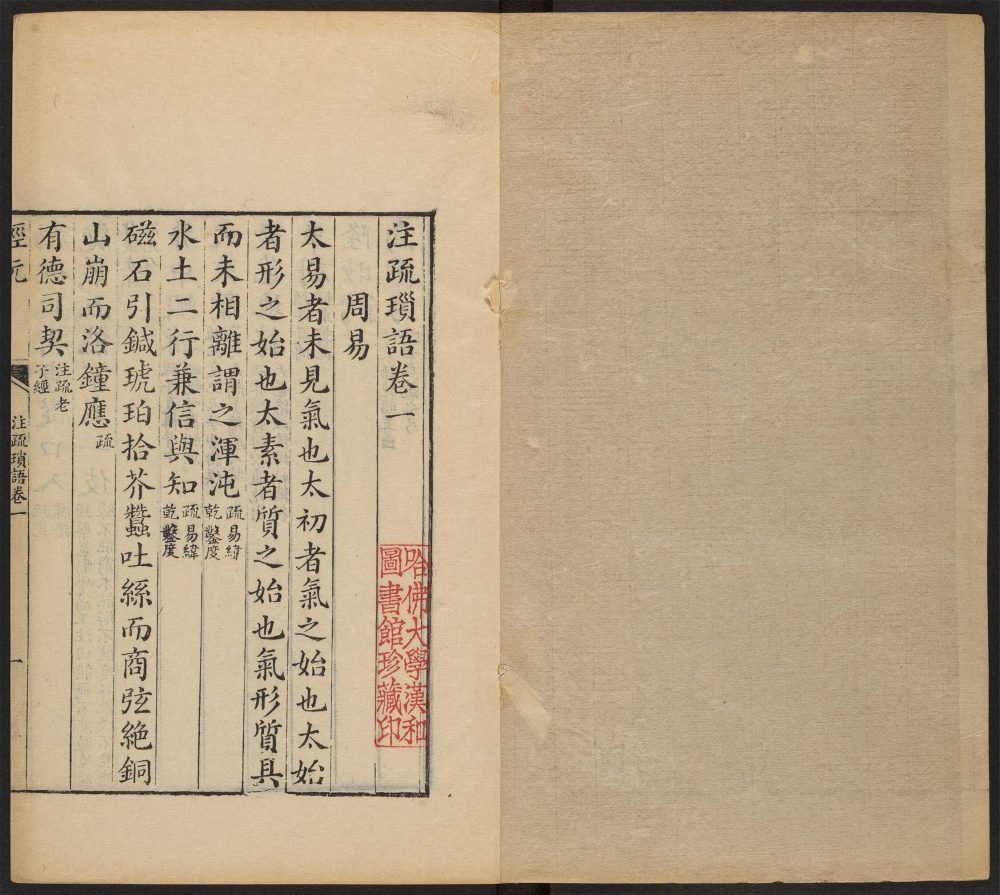 注疏瑣語卷一
周易
太易者未見氣也太初者氣之始也太始
者形之始也太素者質之始也氣形質具
而未相離謂之渾沌疏易緯
乾鑿度
水土二行兼信與知疏易緯
乾鑿度
磁石引鍼琥珀拾芥蠶吐絲而商弦絶銅
山崩而洛鐘應疏
有德司契注疏老
子經
經元
注疏瑣語卷一
一
哈佛大學漢和
圖書館珍藏印